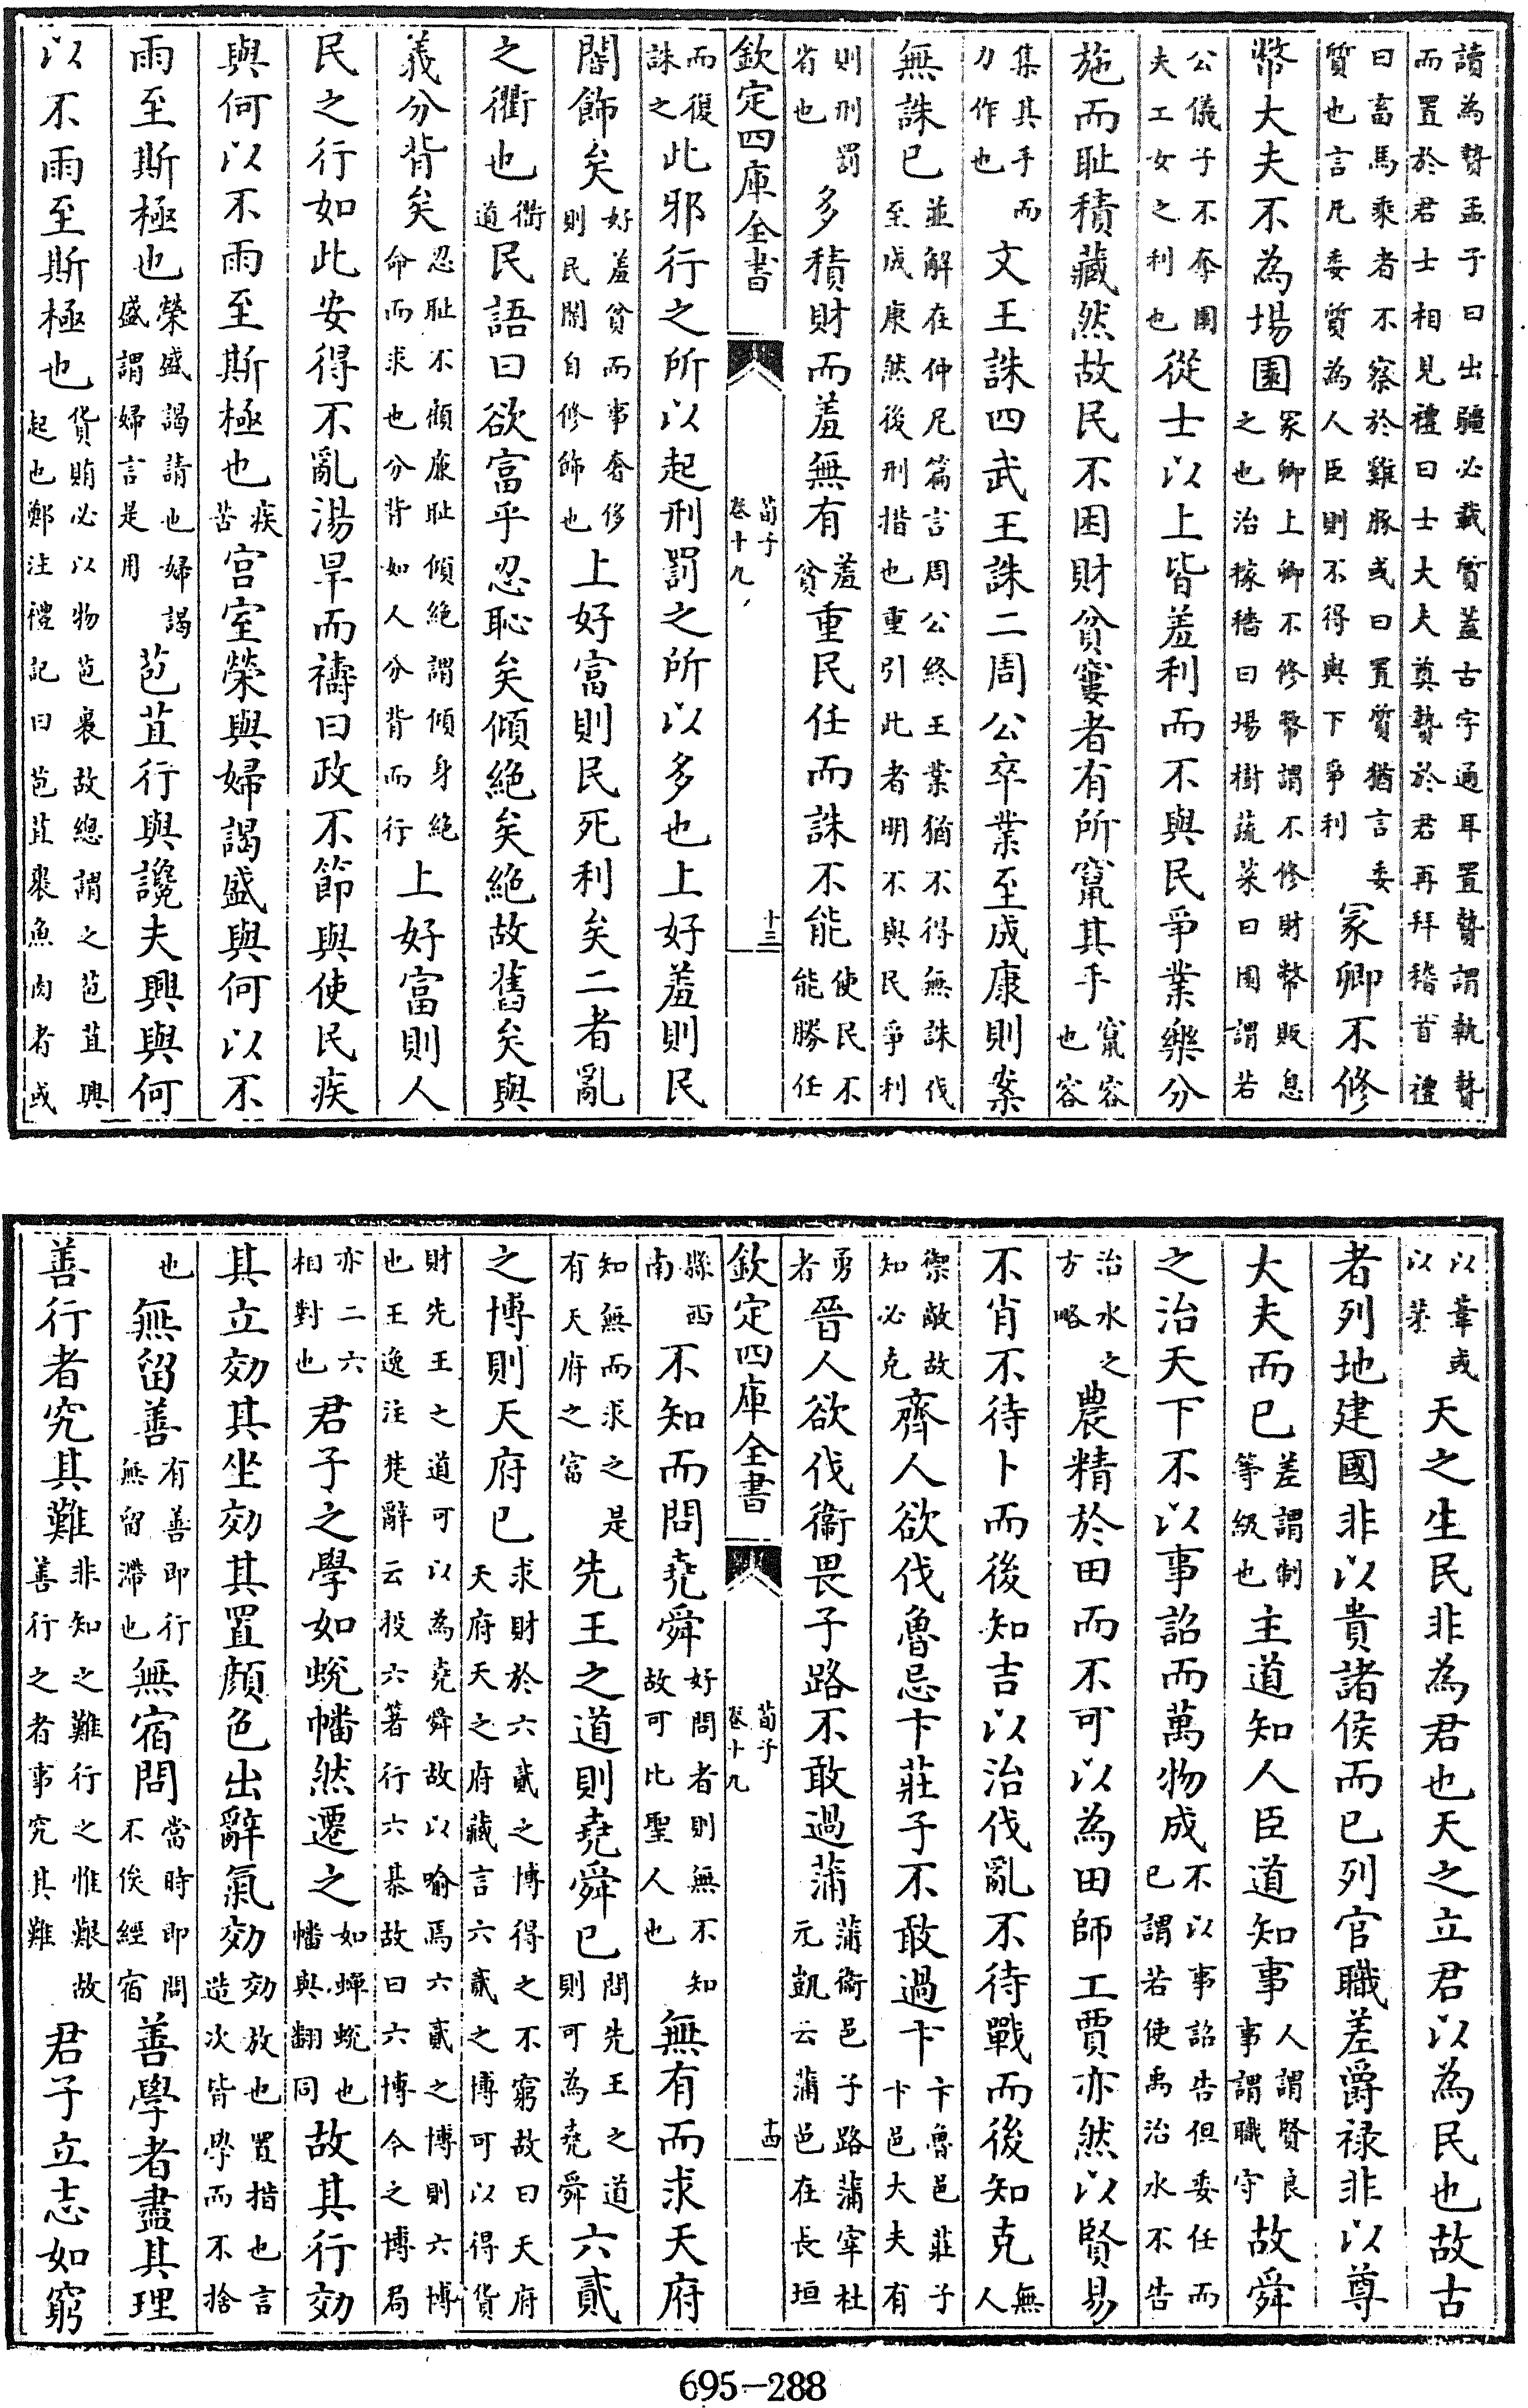 讀為贄孟子曰出疆必載質蓋古字通耳置贄謂執贄
而置於君士相見禮曰士大夫奠贄於君再拜稽首禮
曰畜馬乘者不察於雞豚或曰置質猶言委
質也言凡委質為人臣則不得與下爭利
冢卿不修
幣大夫不為場園
冢卿上卿不修幣謂不修財幣販息
之也治稼穡曰場樹蔬菜曰園謂若
公儀子不奪園
夫工女之利也
從士以上皆羞利而不與民爭業樂分
施而耻積藏然故民不困財貧窶者有所竄其手
竄容
也容
集其手而
力作也
文王誅四武王誅二周公卒業至成康則案
無誅已
並解在仲尼篇言周公終王業猶不得無誅伐
至成康然後刑措也重引此者明不與民爭利
則刑罰
省也
多積財而羞無有
羞
貧
重民任而誅不能
使民不
能勝任
欽定四庫全書
荀子
卷十九
十三
而復
誅之
此邪行之所以起刑罰之所以多也上好羞則民
闇飾矣
好羞貧而事奢侈
則民闇自修飾也
上好富則民死利矣二者亂
之衢也
衢
道
民語曰欲富乎忍恥矣傾絶矣絶故舊矣與
義分背矣
忍耻不顧廉耻傾絶謂傾身絶
命而求也分背如人分背而行
上好富則人
民之行如此安得不亂湯旱而禱曰政不節與使民疾
與何以不雨至斯極也
疾
苦
宫室榮與婦謁盛與何以不
雨至斯極也
榮盛謁請也婦謁
盛謂婦言是用
苞苴行與讒夫興與何
以不雨至斯極也
貨賄必以物苞裹故總謂之苞苴興
起也鄭注禮記曰苞苴裹魚肉者或
以葦或
以茅
天之生民非為君也天之立君以為民也故古
者列地建國非以貴諸侯而已列官職差爵禄非以尊
大夫而已
差謂制
等級也
主道知人臣道知事
人謂賢良
事謂職守
故舜
之治天下不以事詔而萬物成
不以事詔告但委任而
已謂若使禹治水不告
治水之
方略
農精於田而不可以為田師工賈亦然以賢易
不肖不待卜而後知吉以治伐亂不待戰而後知克
無
人
禦敵故
知必克
齊人欲伐魯忌卞莊子不敢過卞
卞魯邑莊子
卞邑大夫有
勇
者
晉人欲伐衞畏子路不敢過蒲
蒲衞邑子路蒲宰杜
元凱云蒲邑在長垣
欽定四庫全書
荀子
卷十九
十四
縣西
南
不知而問堯舜
好問者則無不知
故可比聖人也
無有而求天府
知無而求之是
有天府之富
先王之道則堯舜已
問先王之道
則可為堯舜
六貳
之博則天府已
求財於六貳之博得之不窮故曰天府
天府天之府藏言六貳之博可以得貨
財先王之道可以為堯舜故以喻焉六貳之博則六博
也王逸注楚辭云投六箸行六棊故曰六博今之博局
亦二六
相對也
君子之學如蛻幡然遷之
如蟬蛻也
幡與翻同
故其行効
其立効其坐効其置顔色出辭氣効
効放也置措也言
造次皆學而不捨
也
無留善
有善即行
無留滯也
無宿問
當時即問
不俟經宿
善學者盡其理
善行者究其難
非知之難行之惟艱故
善行之者事究其難
君子立志如窮
695-288